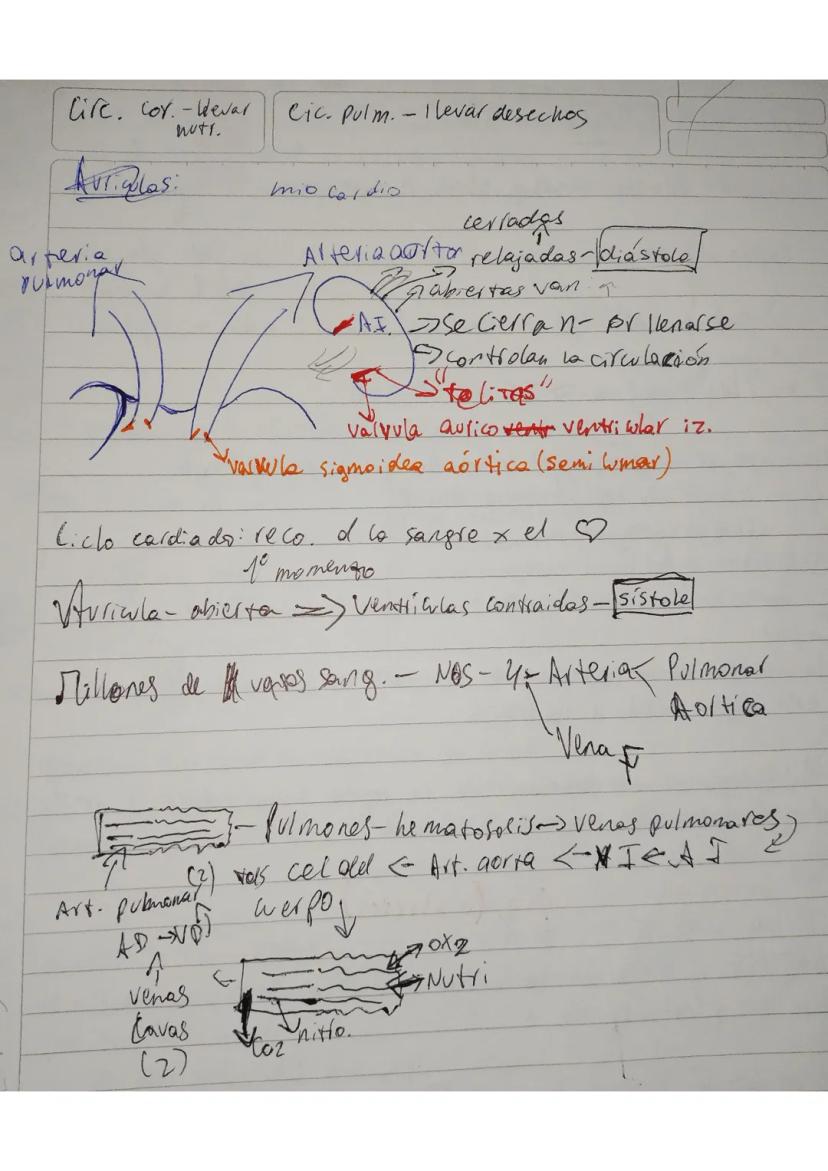 Circ. cor. - llevar nutr.
Cic. pulm. - llevar desechos
Auriculas:
mio cardio
cerradas
arteria pulmonar
Arteria aorta
relajadas - diástole
abiertas van
AI.
→ Se cierran - pr llenarse
→ controlan la circulación
"telitas"
valvula aurico ventricular iz.
valvula sigmoidea aórtica (semi lumar)
Ciclo cardiado: reco. d la sangre x el ♡
1º momento
Auricula - abierta => Ventriculas contraidas - sístole
Millones de vasos sang. - NOS - 4 - Arteria < Pulmonar
Aortica
Vena
- Pulmones - hematosolis → venas pulmonares
(2) cel del ← Art. aorta ← V I ← A I
Art. pulmonar
cuerpo
AD → VD
ox2
venas
Nutri
cavas
nitro.
Co2
(2)